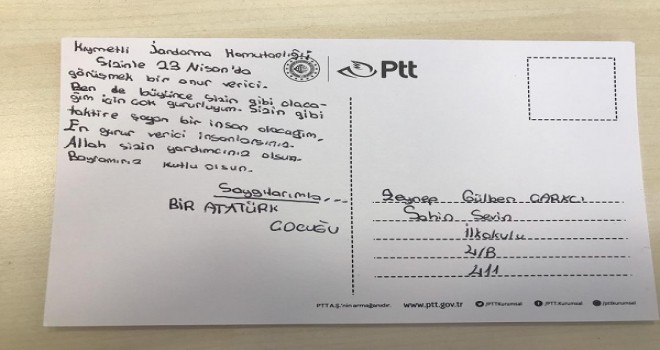 Kıymetli Jandarma Komutanlığı
Sizinle 23 Nisan'da
görüşmek bir onur verici.
Ben de büyünce sizin gibi olaca-
ğım için çok gururluyum. Sizin gibi
taktire şayan bir insan olacağım.
En gurur verici insanlarsınız.
Allah sizin yardımcınız olsun.
Bayramınız kutlu olsun.
Saygılarımla...
BİR ATATÜRK
ÇOCUĞU
Ptt
Zeynep Gülben
Şahin Sevin
İlkokulu
4/B
411
PTT A.Ş.'nin armağanıdır.
www.ptt.gov.tr
/PTTKurumsal
/PTT.Kurumsal
/pttkurumsal